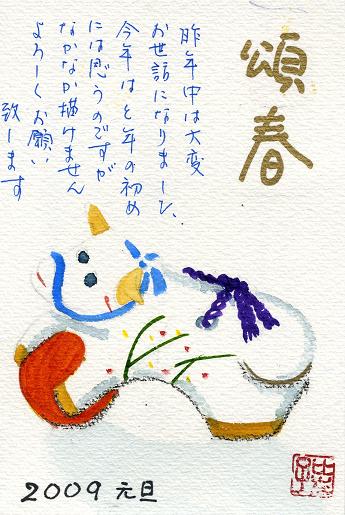 頌春
昨年中は大変
お世話になりました、
今年はと年の初め
には思うのですが
なかなか描けません
よろしくお願い
致します
2009 元旦